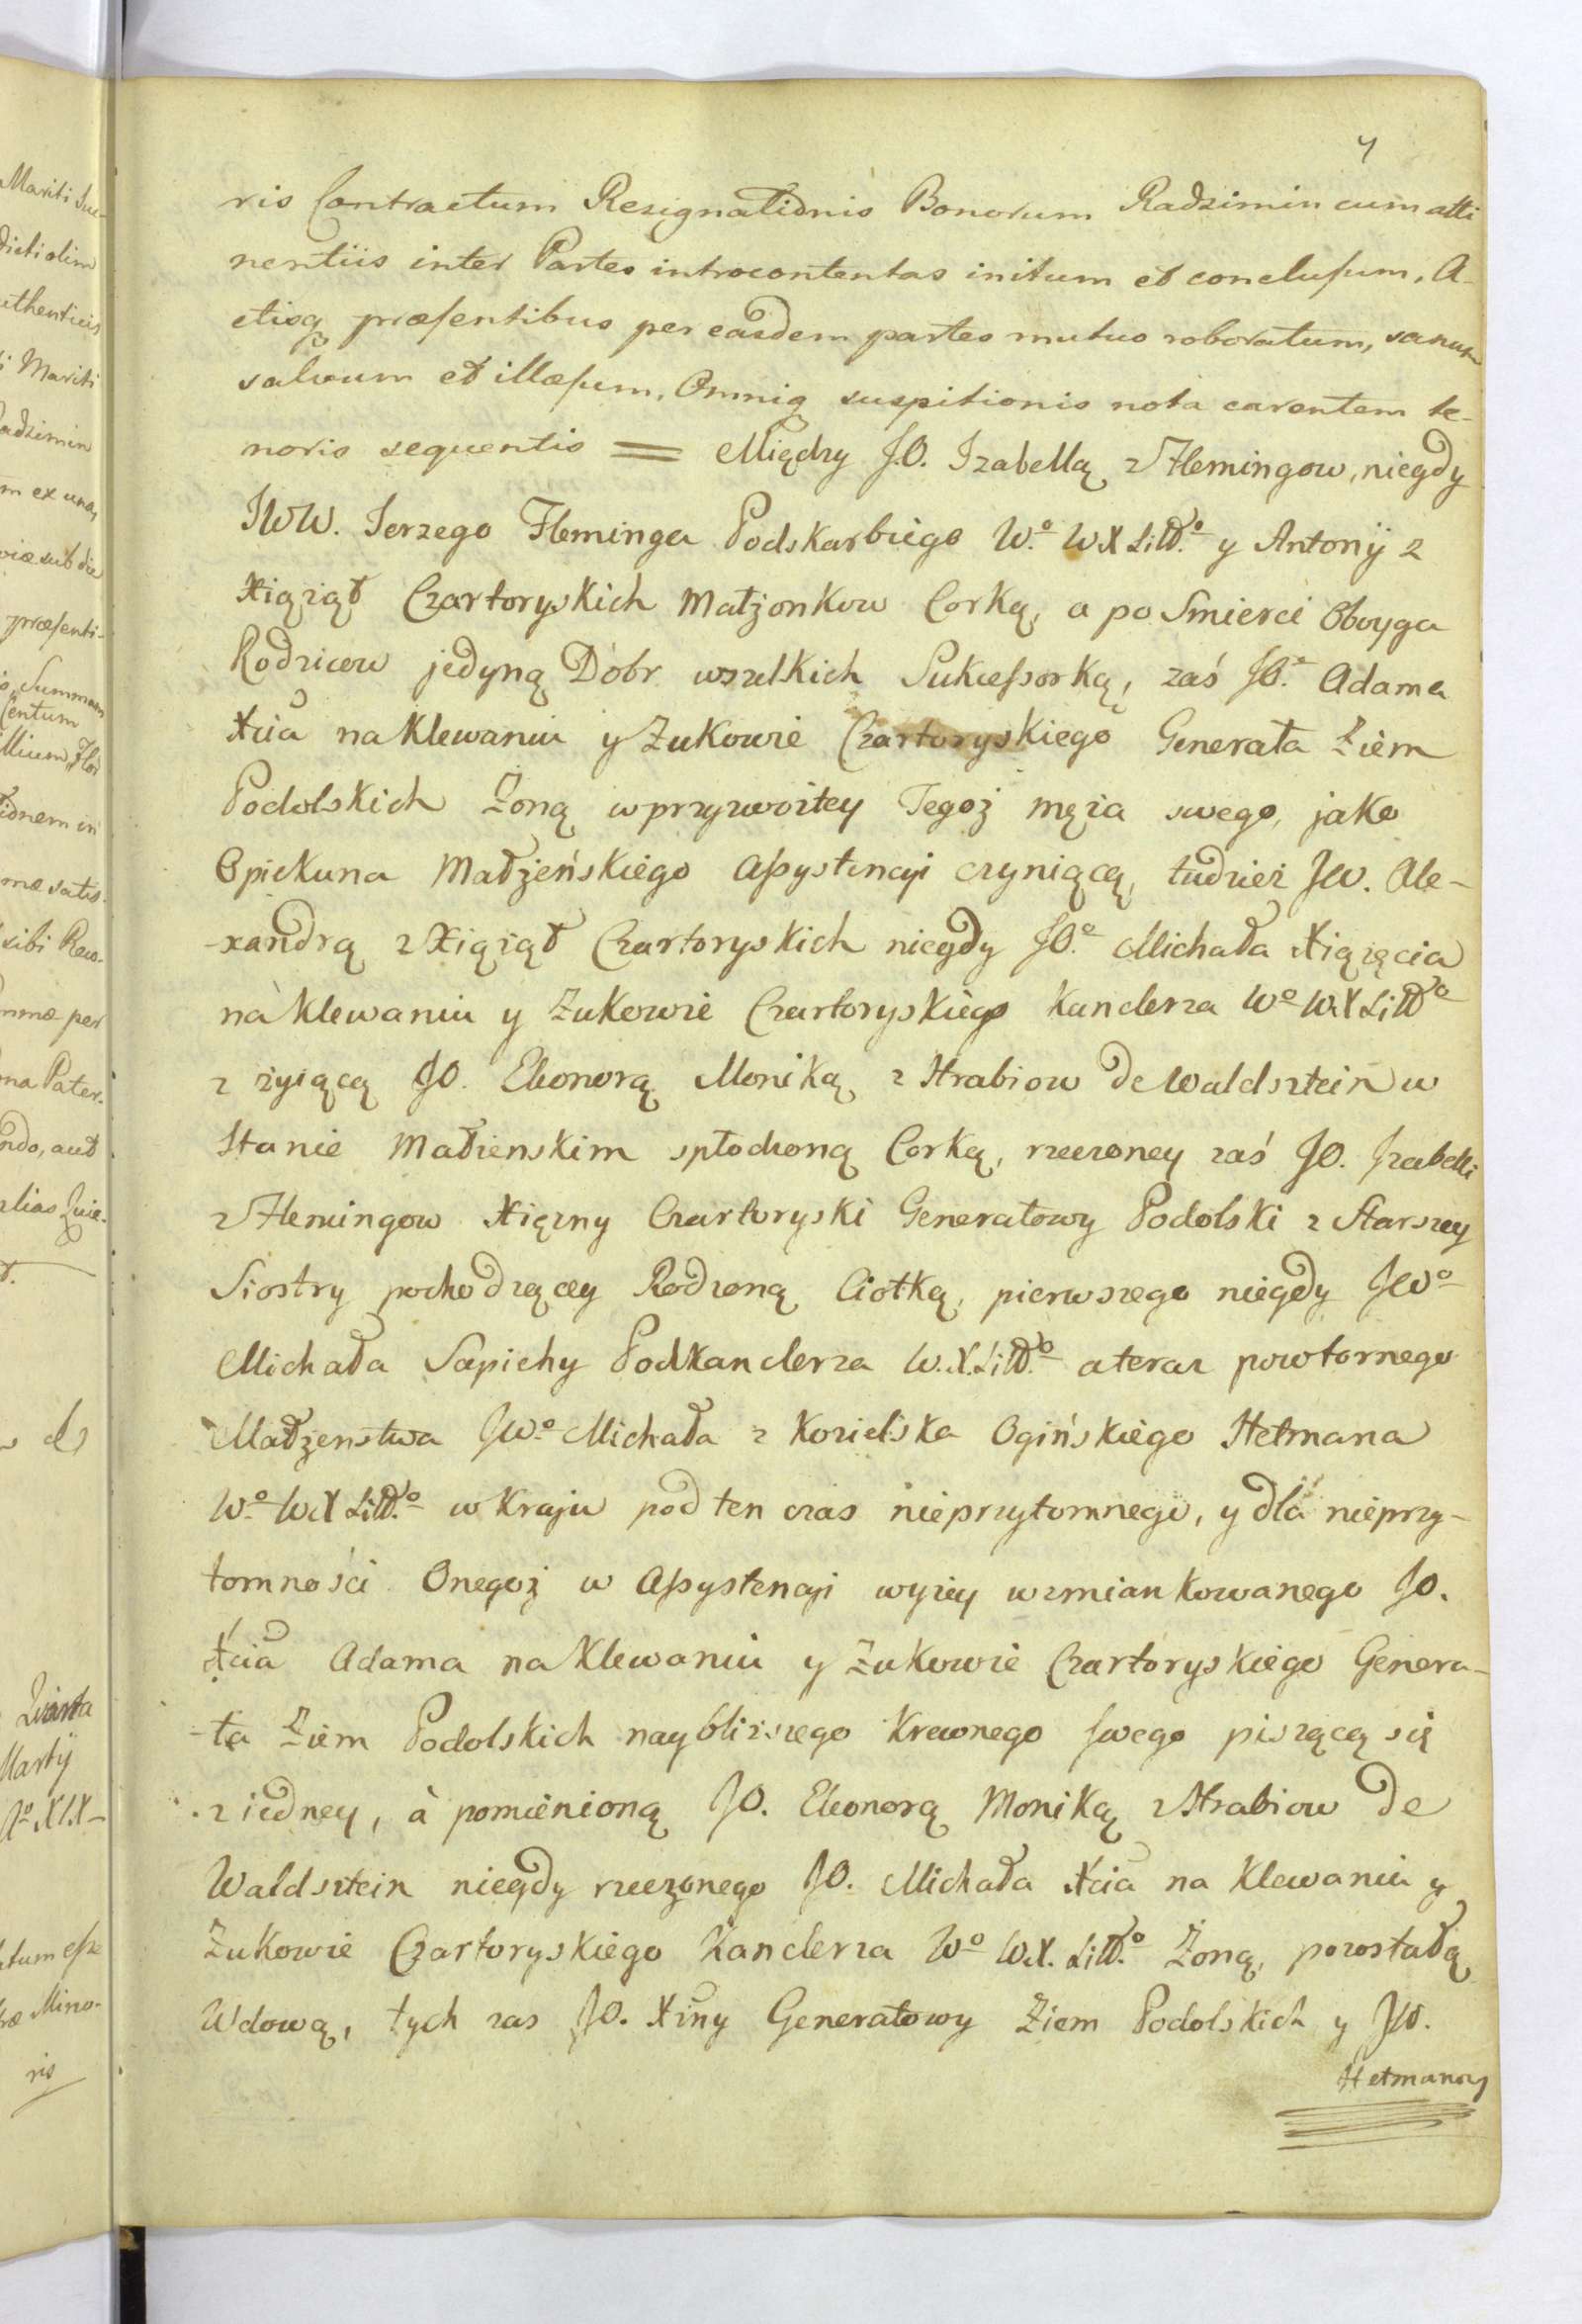 4
ris Contractum Resignationis Bonorum Radzimin cum atti
nentiis inter Partes introcontentas initum et conclusum, A-
ctisq præsentibus per easdem partes mutuo roboratum, sanum
salvum et illæsum, Omniq suspitionis nota carentem te-
noris sequentis = Między J.O. Izabellą z Flemingow, niegdy
JWW. Jerzego Fleminga Podskarbiego Wo WX Littº y Antonij z
Xiążąt Czartoryskich Małżonkow Corką, a po Smierci Oboyga
Rodzicow jedyną Dóbr wszelkich Sukcessorką, zaś JOº Adama
Xcia na Klewaniu y Zukowie Czartoryskiego Generała Ziem
Podolskich Zoną w przyzwoitey Tegoż męża swego, jako
Opiekuna Małżeńskiego Assystencyi czyniącą, tudzież JW. Ale-
-xandrą z Xiążąt Czartoryskich niegdy JOº Michała Xiążęcia
na Klewaniu y Zukowie Czartoryskiego Kanclerza Wº W.X Littº
z żyiącą JO. Eleonorą Moniką z Hrabiow de Waldsztein w
Stanie Małżenskim spłodzoną Corką, rzeczoney zaś JO. Izabelli
z Flemingow Xiężny Czartoryski Generałowy Podolski z Starszey
Siostry pochodzącey Rodzoną Ciotką, pierwszego niegdy JWº
Michała Sapiehy Podkanclerza W.X.Littº a teraz powtornego
Małżenstwa JWº Michała z Kozielska Ogińskiego Hetmana
Wº W.X Littº w Kraju pod ten czas nieprzytomnego, y dla nieprzy-
tomności Onegoż w Assystencyi wyżey wzmiankowanego JO.
Xcia Adama na Klewaniu y Zukowie Czartoryskiego Genera-
-ła Ziem Podolskich naybliższego Krewnego swego piszącą się
z iedney, à pomienioną JO. Eleonorą Moniką z Hrabiow de
Waldsztein niegdy rzeczonego JO. Michała Xcia na Klewaniu y
Zukowie Czartoryskiego Kanclerza Wº W.X. Littº Żoną, pozostałą
Wdową, tych zas JO. Xiny Generałowy Ziem Podolskich y JW.
Hetmanowy
Mariti Suc-
dicti olim
uthenticis
i Mariti
adzimin
m ex una,
viæ sub die
præsenti-
Summam
Centum
llium Flor
tidnem in
mæ satis-
sibi Rew-
mmæ per
na Pater-
ndo, aut
alias
Martij
tum esse
ræ Mino-
ris